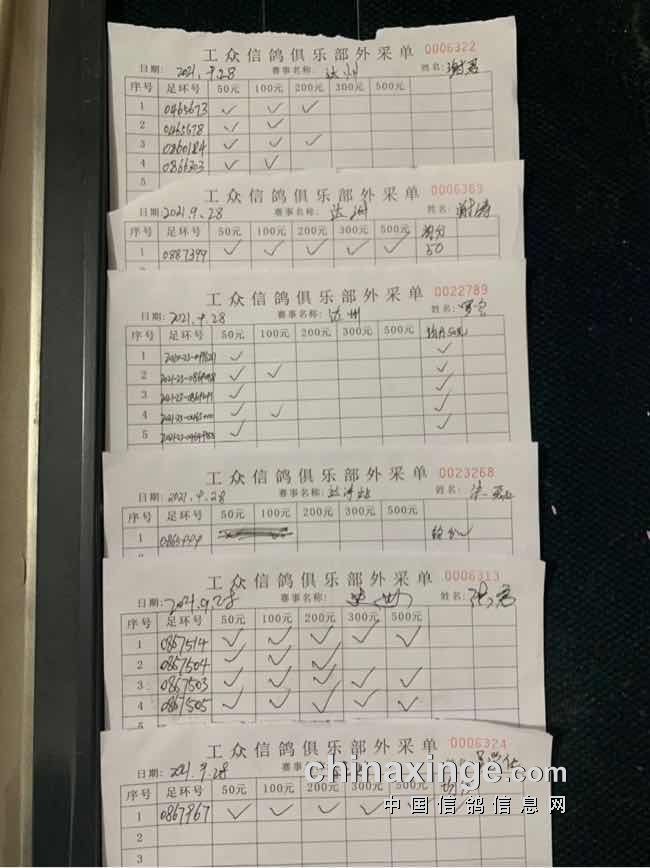 工众信鸽俱乐部外采单 0006322
日期: 2021.9.28 赛事名称: 达州 姓名:
序号 足环号 50元 100元 200元 300元 500元
1 0465673 ✓ ✓ ✓
2 0465678 ✓ ✓
3 0860184 ✓ ✓ ✓
4 0866303 ✓ ✓
5
工众信鸽俱乐部外采单 0006363
日期: 2021.9.28 赛事名称: 达州 姓名:
序号 足环号 50元 100元 200元 300元 500元
1 0887399 ✓ ✓ ✓ ✓ ✓ 50
工众信鸽俱乐部外采单 0022789
日期: 2021.9.28 赛事名称: 达州 姓名:
序号 足环号 50元 100元 200元 300元 500元 50元
1 ✓ ✓
2 ✓ ✓ ✓
3 ✓ ✓
4 ✓ ✓ ✓
5 ✓ ✓
工众信鸽俱乐部外采单 0023268
日期: 2021.9.28 赛事名称: 姓名:
序号 足环号 50元 100元 200元 300元 500元
1
工众信鸽俱乐部外采单 0006313
日期: 2021.9.28 赛事名称: 姓名:
序号 足环号 50元 100元 200元 300元 500元
1 0867514 ✓ ✓ ✓ ✓ ✓
2 0867504 ✓ ✓ ✓
3 0867503 ✓ ✓ ✓ ✓ ✓
4 0867505 ✓ ✓ ✓ ✓ ✓
5
工众信鸽俱乐部外采单 0006324
日期: 2021.9.28 赛事名称:
chinaxinge.com
序号 足环号 50元 100元 200元 300元 500元
中国信鸽信息网
1 0867967 ✓ ✓ ✓ ✓ ✓
2
3